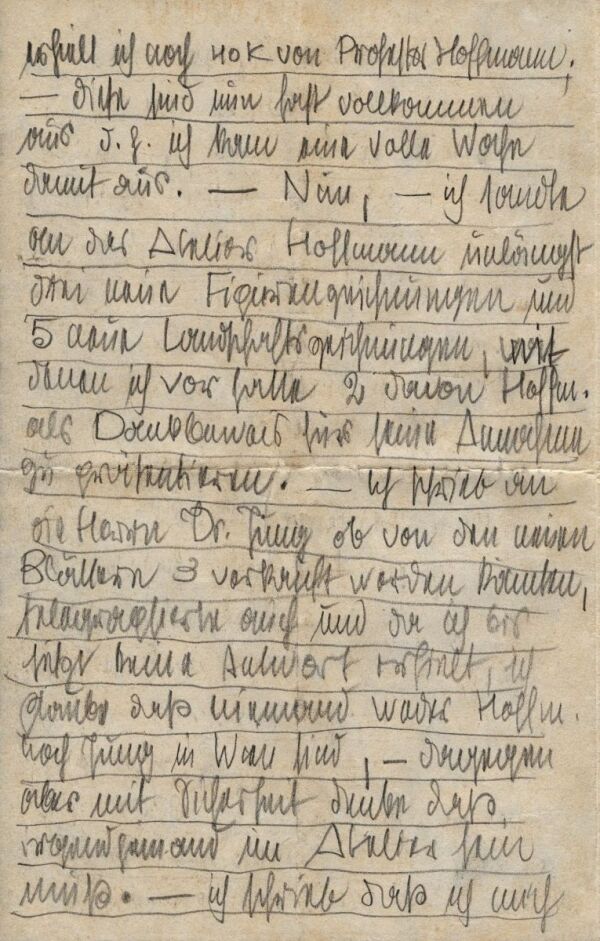 erhielt ich noch 40 K von Professor Hoffmann,
— diese sind nun fast vollkommen
aus d. h. ich kam eine volle Woche
damit aus. — Nun, — ich sandte
an das Atelier Hoffmann unlängst
drei neue Figurenzeichnungen und
5 neue Landschaftszeichnungen, mit
denen ich vor hatte 2 davon Hoffm.
als Dankbeweis für seine Annahme
zu präsentieren. — ich schrieb an
die Herrn Dr. Jung ob von den neuen
Blättern 3 verkauft werden könnten,
telegraphierte auch und da ich bis
jetzt keine Antwort erhielt, ich
glaube daß niemand weder Hoffm.
noch Jung in Wien sind, — dagegen
aber mit Sicherheit denke daß
irgendjemand im Atelier sein
muß. — ich schrieb daß ich auch